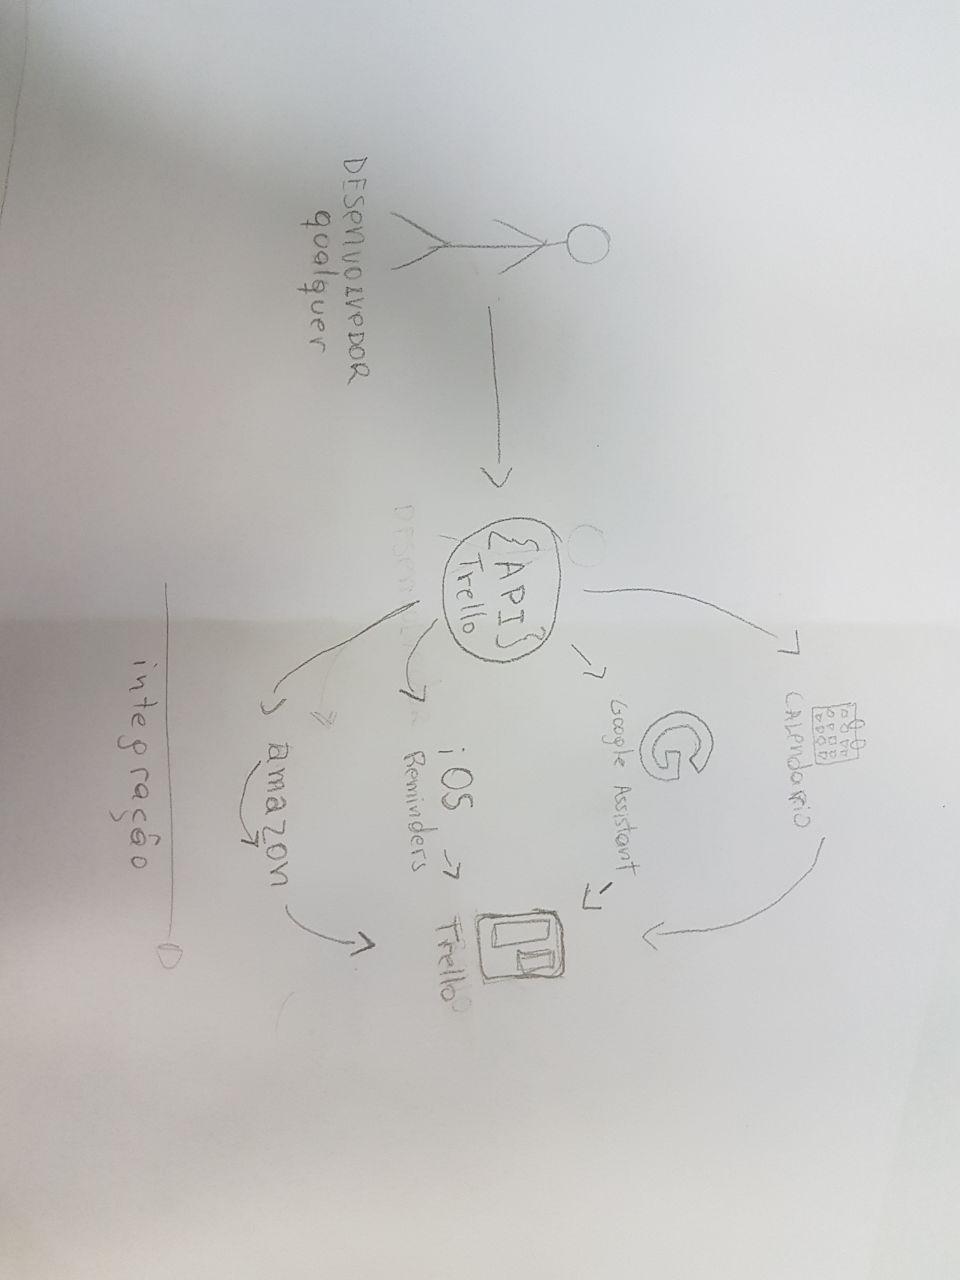 DESENVOLVEDOR
qualquer
{API}
Trello
CALENDARIO
G
Google Assistant
iOS
Reminders
amazon
Trello
integração